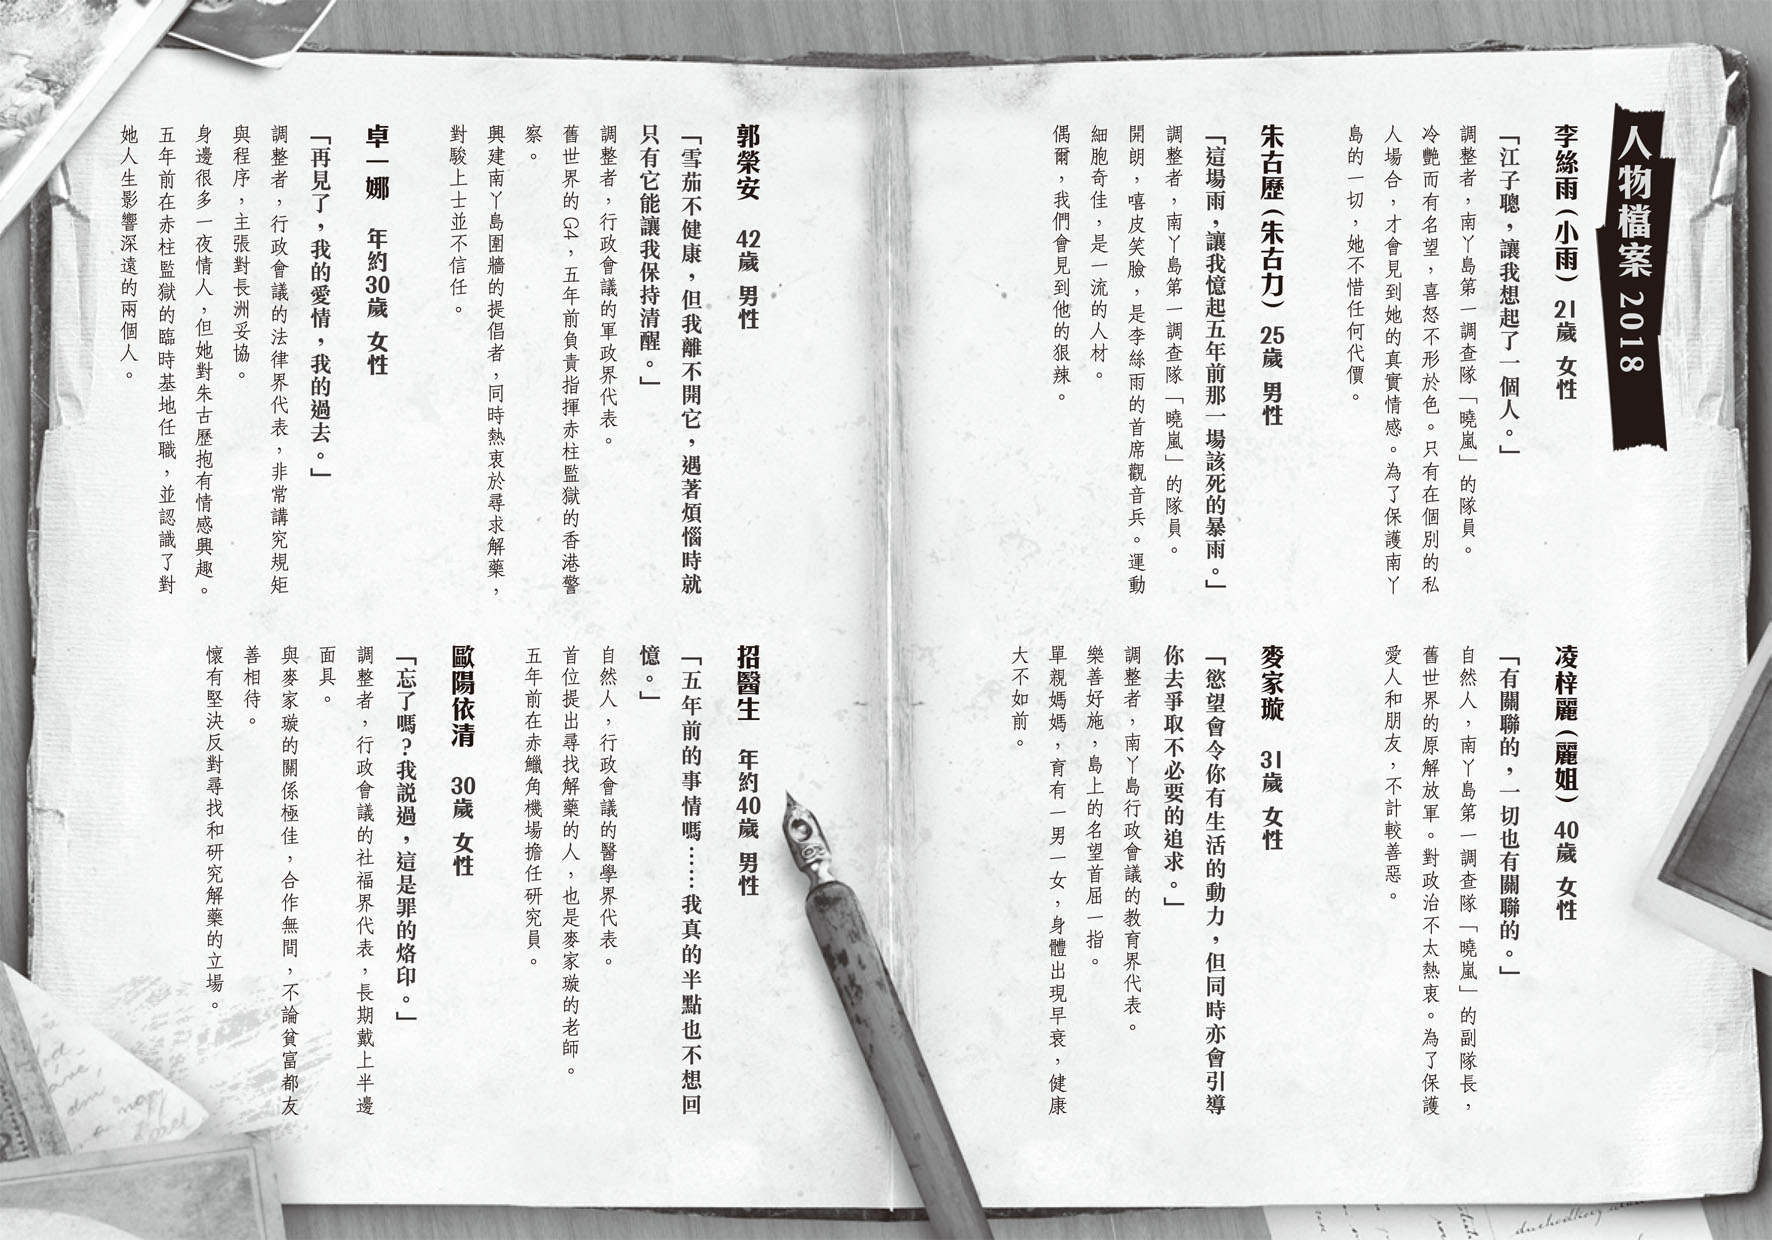 人物檔案 2018
李絲雨（小雨） 21歲 女性
「江子聰，讓我想起了一個人。」
調整者，南丫島第一調查隊「曉嵐」的隊員。
冷艷而有名望，喜怒不形於色。只有在個別的私
人場合，才會見到她的真實情感。為了保護南丫
島的一切，她不惜任何代價。
凌梓麗（麗姐） 40歲 女性
「有關聯的，一切也有關聯的。」
自然人，南丫島第一調查隊「曉嵐」的副隊長，
舊世界的原解放軍。對政治不太熱衷。為了保護
愛人和朋友，不計較善惡。
朱古歷（朱古力） 25歲 男性
「這場雨，讓我憶起五年前那一場該死的暴雨。」
調整者，南丫島第一調查隊「曉嵐」的隊員。
開朗，嘻皮笑臉，是李絲雨的首席觀音兵。運動
細胞奇佳，是一流的人材。
偶爾，我們會見到他的狠辣。
麥家璇 31歲 女性
「慾望會令你有生活的動力，但同時亦會引導
你去爭取不必要的追求。」
調整者，南丫島行政會議的教育界代表。
樂善好施，島上的名望首屈一指。
單親媽媽，育有一男一女，身體出現早衰，健康
大不如前。
郭榮安 42歲 男性
「雪茄不健康，但我離不開它，遇著煩惱時就
只有它能讓我保持清醒。」
調整者，行政會議的軍政界代表。
舊世界的G4，五年前負責指揮赤柱監獄的香港警
察。
興建南丫島圍牆的提倡者，同時熱衷於尋求解藥，
對駿上士並不信任。
招醫生 年約40歲 男性
「五年前的事情嗎……我真的半點也不想回
憶。」
自然人，行政會議的醫學界代表。
首位提出尋找解藥的人，也是麥家璇的老師。
五年前在赤鱲角機場擔任研究員。
卓一娜 年約30歲 女性
「再見了，我的愛情，我的過去。」
調整者，行政會議的法律界代表，非常講究規矩
與程序，主張對長洲妥協。
身邊很多一夜情人，但她對朱古歷抱有情感興趣。
五年前在赤柱監獄的臨時基地任職，並認識了對
她人生影響深遠的兩個人。
歐陽依清 30歲 女性
「忘了嗎？我說過，這是罪的烙印。」
調整者，行政會議的社福界代表，長期戴上半邊
面具。
與麥家璇的關係極佳，合作無間，不論貧富都友
善相待。
懷有堅決反對尋找和研究解藥的立場。